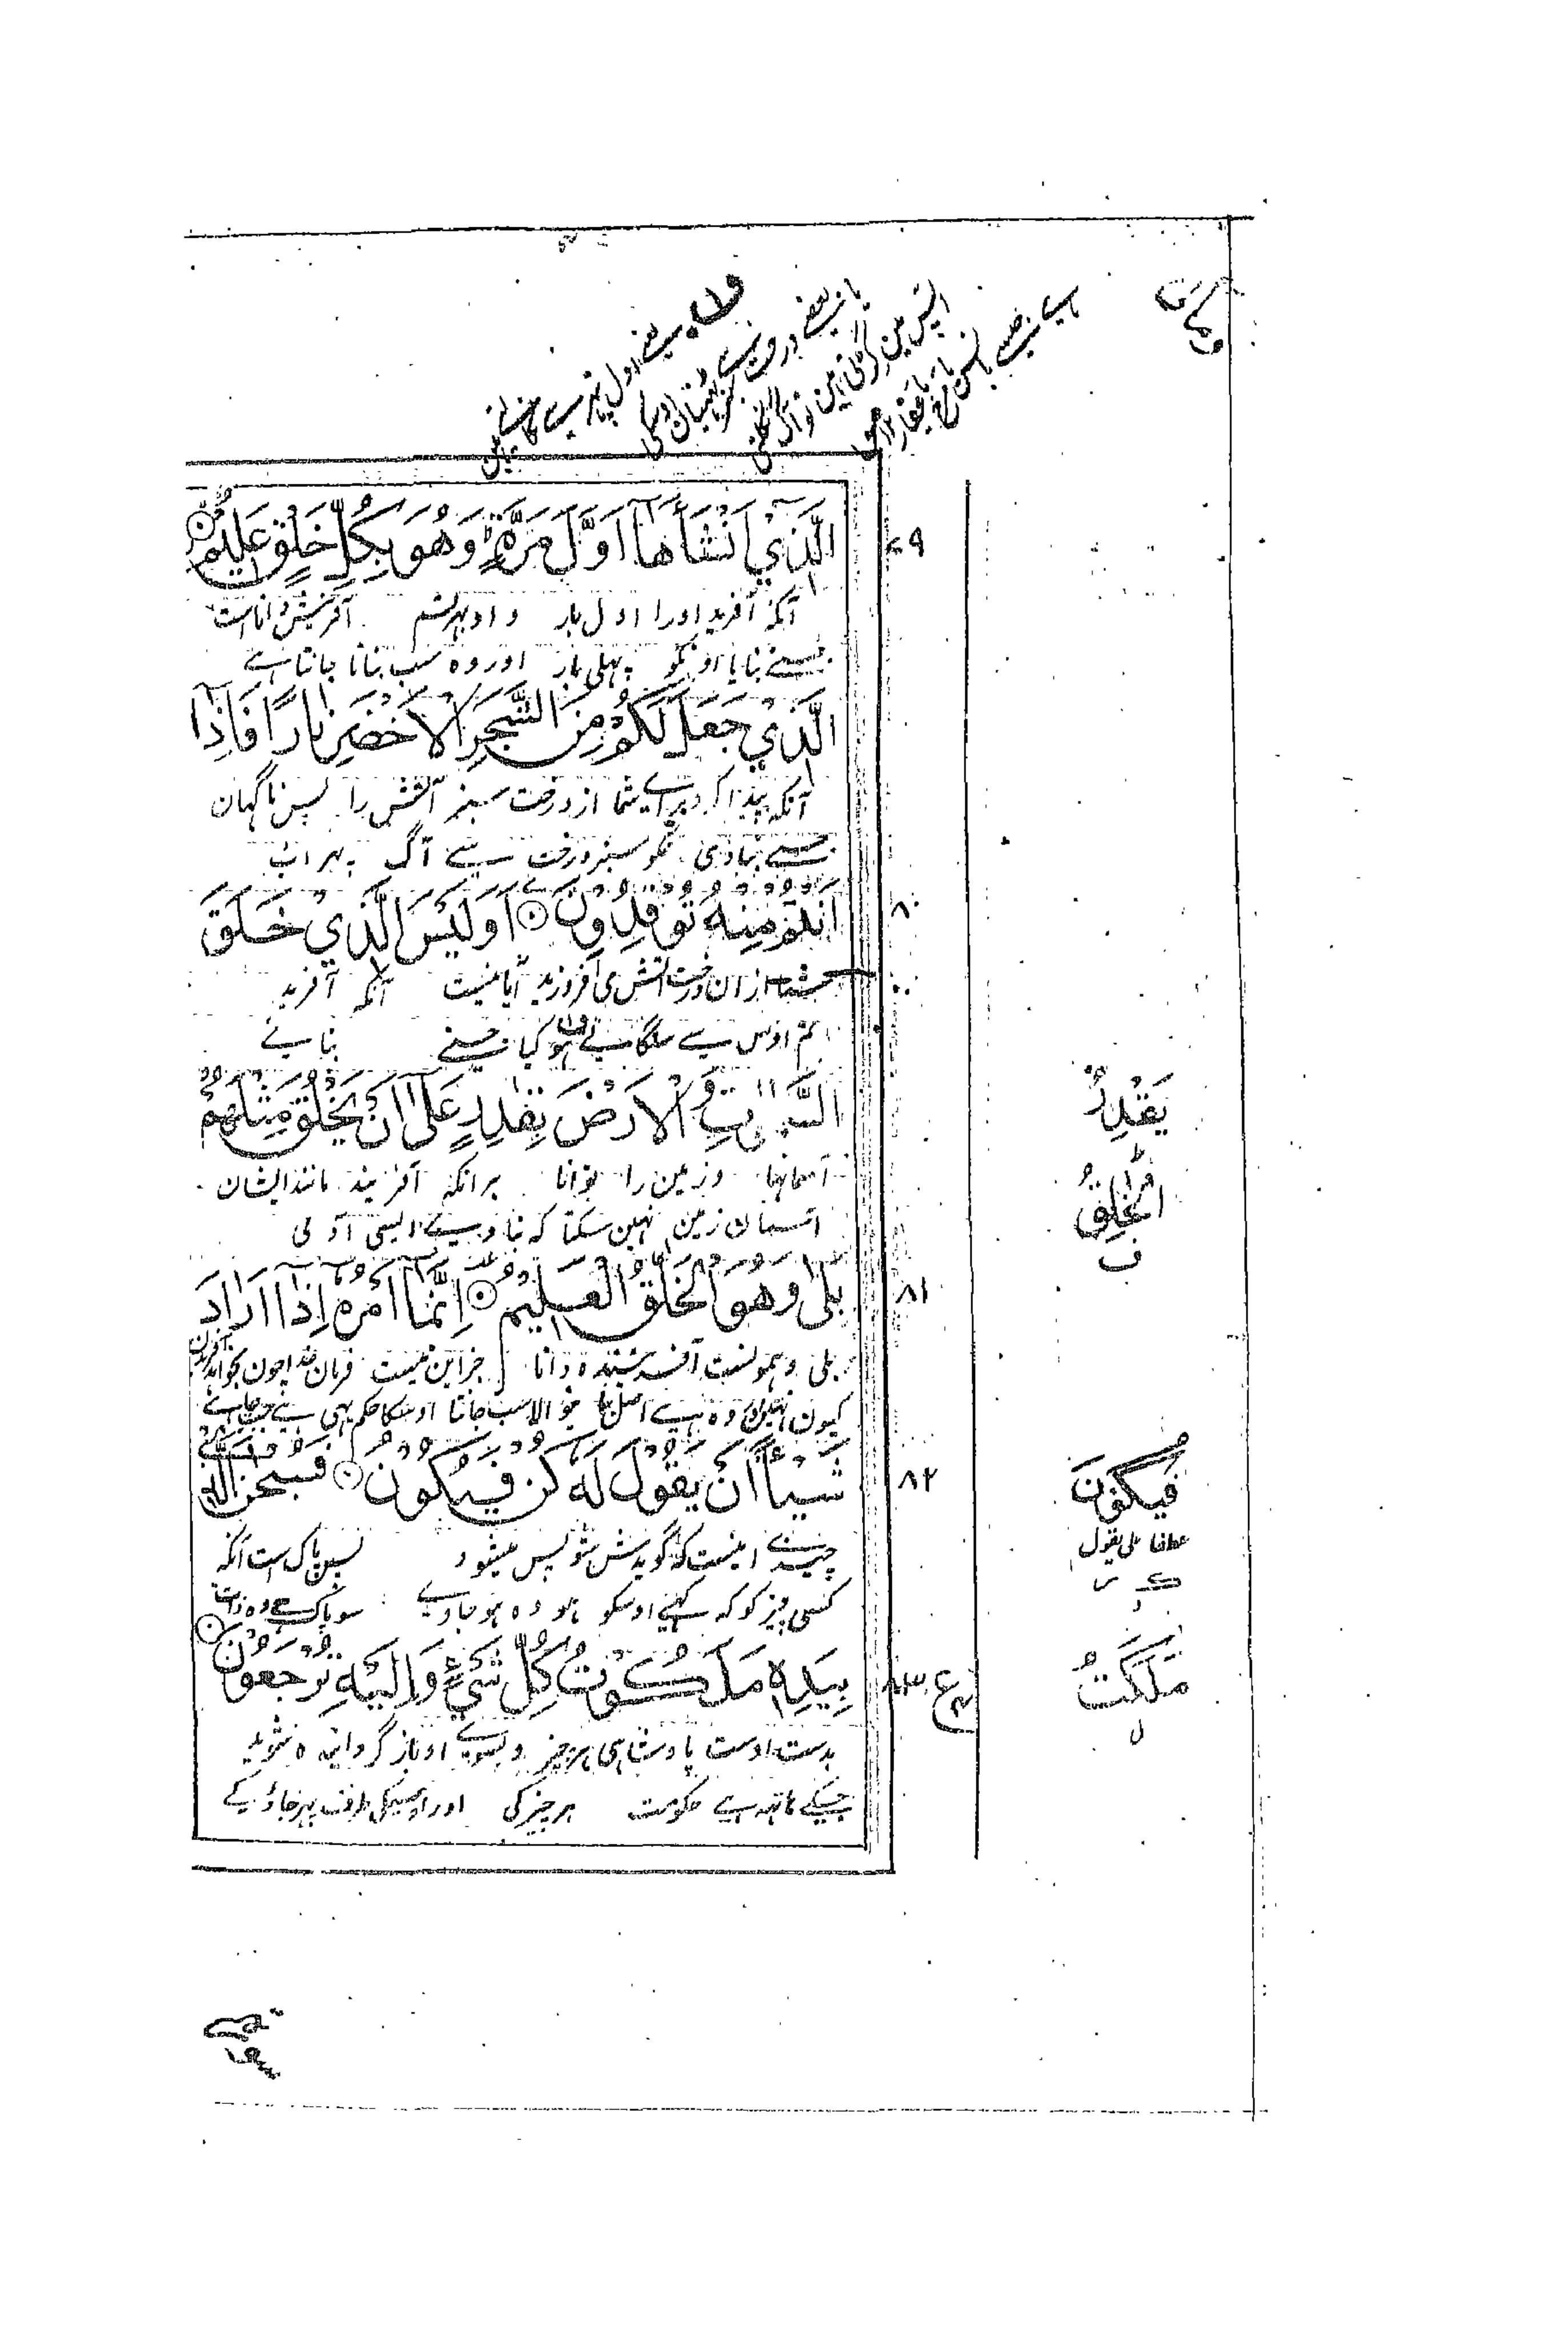 الَّذِيْ اَنْشَاَهَا اَوَّلَ مَرَّةٍ وَهُوَ بِكُلِّ خَلْقٍ عَلِيْمٌ
٧٩
آنکه آفرید اورا اول بار و او بهر قسم آفرینش دانا است
جسنے بنایا اونکو پہلی بار اور وہ سب بنانا جانتا ہے
الَّذِيْ جَعَلَ لَكُمْ مِنَ الشَّجَرِ الْاَخْضَرِ نَارًا فَاِذَا
آنکه پیدا کرد برای شما از درخت سبز آتش را پس ناگهان
جسنے بنا دی تمکو سبز درخت سے آگ پہر اب
اَنْتُمْ مِنْهُ تُوْقِدُوْنَ اَوَلَيْسَ الَّذِيْ خَلَقَ
٨٠
شما از ان درخت آتش می افروزید آیا نیست آنکه آفرید
تم اوس سے سلگاتے ہو کیا جسنے بنائے
السَّمٰوٰتِ وَالْاَرْضَ بِقٰدِرٍ عَلٰٓى اَنْ يَخْلُقَ مِثْلَهُمْ
يَقْدِرُ
آسمانها و زمین را توانا برانکه آفریند مانند ایشان
الْخٰلِقُ
آسمان زمین نہین سکتا کہ بناوے ایسی
بَلٰى وَهُوَ الْخَلّٰقُ الْعَلِيْمُ اِنَّمَآ اَمْرُهٗٓ اِذَآ اَرَادَ
٨١
بلی و همونست آفریننده دانا جز این نیست فرمان خدا چون بخواهد آفریدن
کیون نہین اور وہ ہے اصل بنانیوالا سب جانتا اوسکا حکم یہی ہے جب چاہے
شَيْـًٔا اَنْ يَقُوْلَ لَهٗ كُنْ فَيَكُوْنُ فَسُبْحٰنَ الَّذِيْ
٨٢
فَيَكُوْنَ
چیزے اینست که گویدش شو پس میشود پس پاک است آنکه
عطفا علی یقول
کسی چیز کو کہ کہے اوسکو ہو وہ ہو جاوے سو پاک ہے وہ ذات
بِيَدِهٖ مَلَكُوْتُ كُلِّ شَيْءٍ وَاِلَيْهِ تُرْجَعُوْنَ
٨٣
ع
مَلَكَتُ
بدست اوست پادشاهی هر چیز و بسوے او باز گردانیده شوید
جسکے ہاتہہ ہے حکومت ہر چیز کی اور اوسیکی طرف پہر جاؤگے